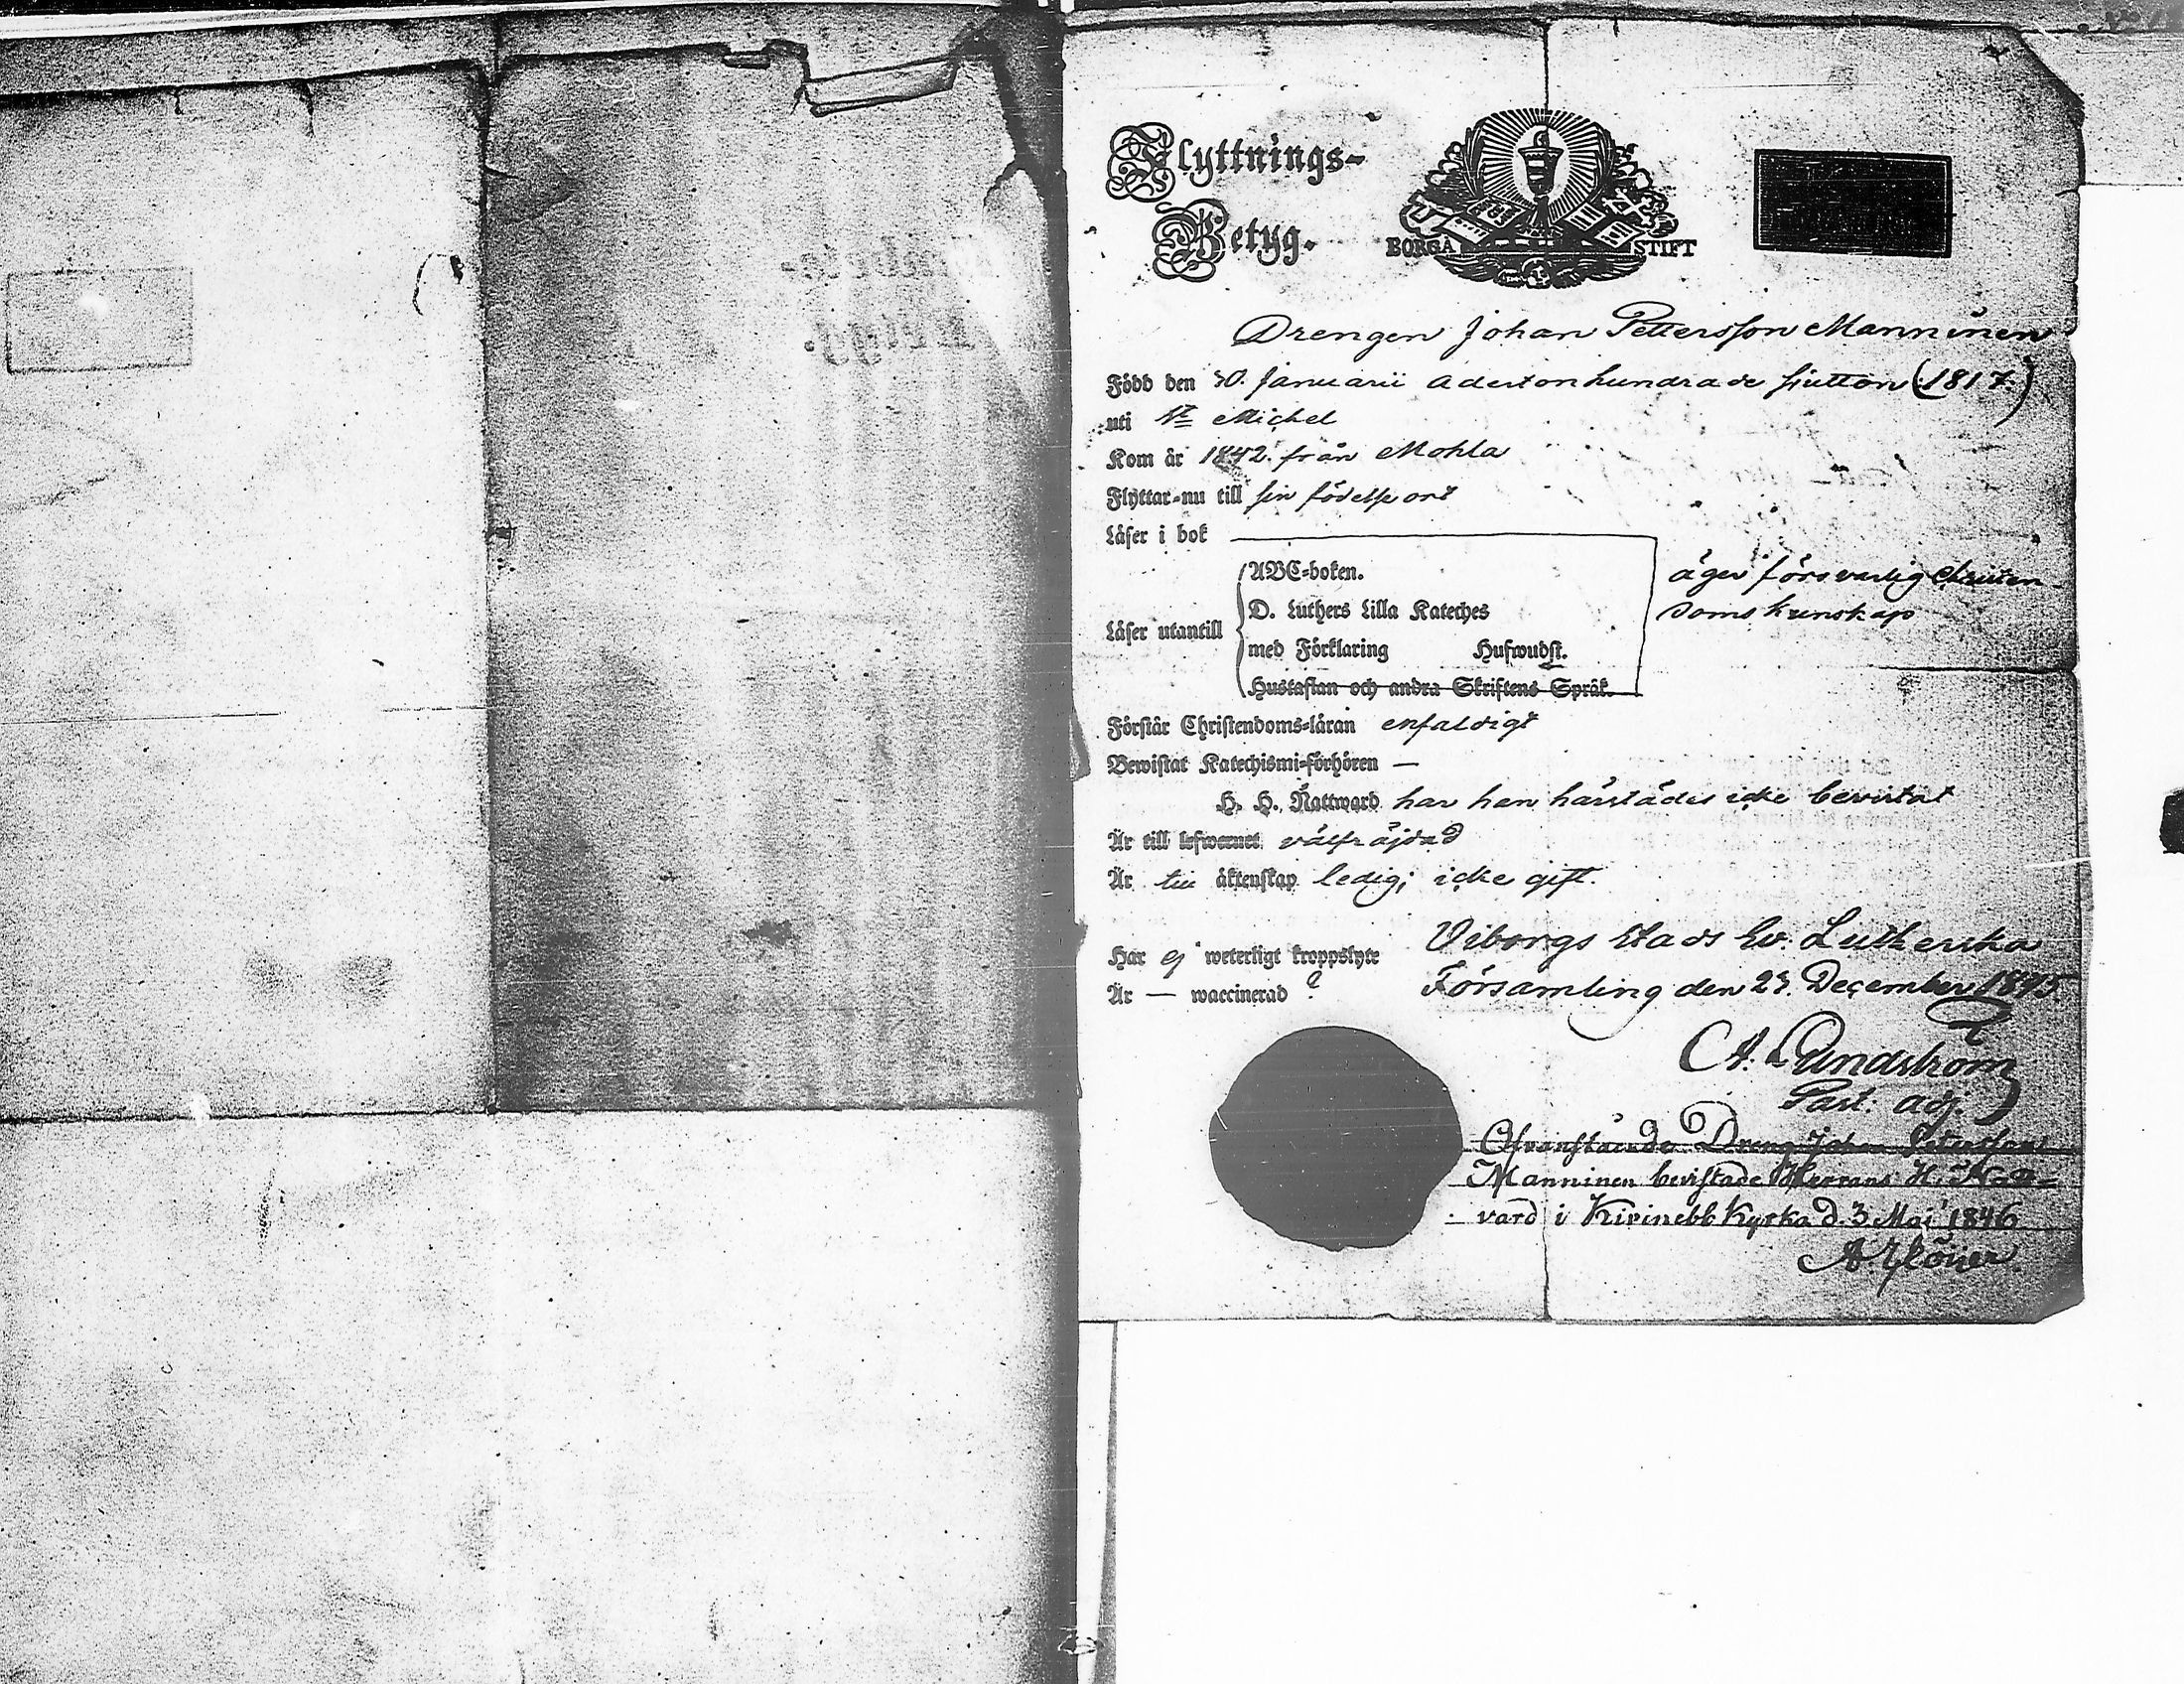 Flyttnings-
Betyg.
BORGÅ STIFT
Drengen Johan Pettersson Manninen
Född den 30. Januarii adertonhundrade sjutton (1817.)
uti St Michel
Kom år 1842 från Mohla
Flyttar nu till sin födelse ort
Läser i bok
ABC-boken.
äger försvarlig Christen-
D. Luthers Lilla Kateches
doms kunskap
Läser utantill
med Förklaring Hufwudst.
Hustaflan och andra Skriftens Språk.
Förstår Christendoms-läran enfaldigt
Bewistat Katechismi-förhören —
H. H. Nattward har han härstädes icke bevistat
Är till lefwernet välfräjdad
Är till äktenskap ledig; icke gift.
Viborgs Stads Ev. Lutherska
Har ej weterligt kroppslyte
Församling den 23. December 1845
Är — waccinerad ?
A. Lundström
Past: adj.
Ofvanstående Dreng Johan Petersson
Manninen bevistade Herrans H. Natt-
vard i Kivinebb Kyrka d. 3 Maj 1846